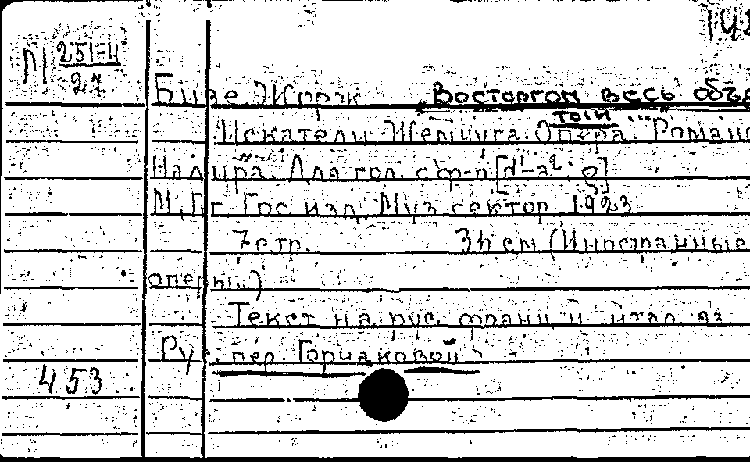 М 251-4
27
Бизе Жорж Восторгом весь объя
тый ...
Искатели Жемчуга. Опера. Романс
Надира. Для гол. с ф-п [d¹-a²; g]
М., Пг. Гос. изд. Муз. сектор 1923
7 стр. 36 см (Иностранные
оперы)
Текст на рус. франц. и итал. яз.
Рус. пер. Горчаковой
453